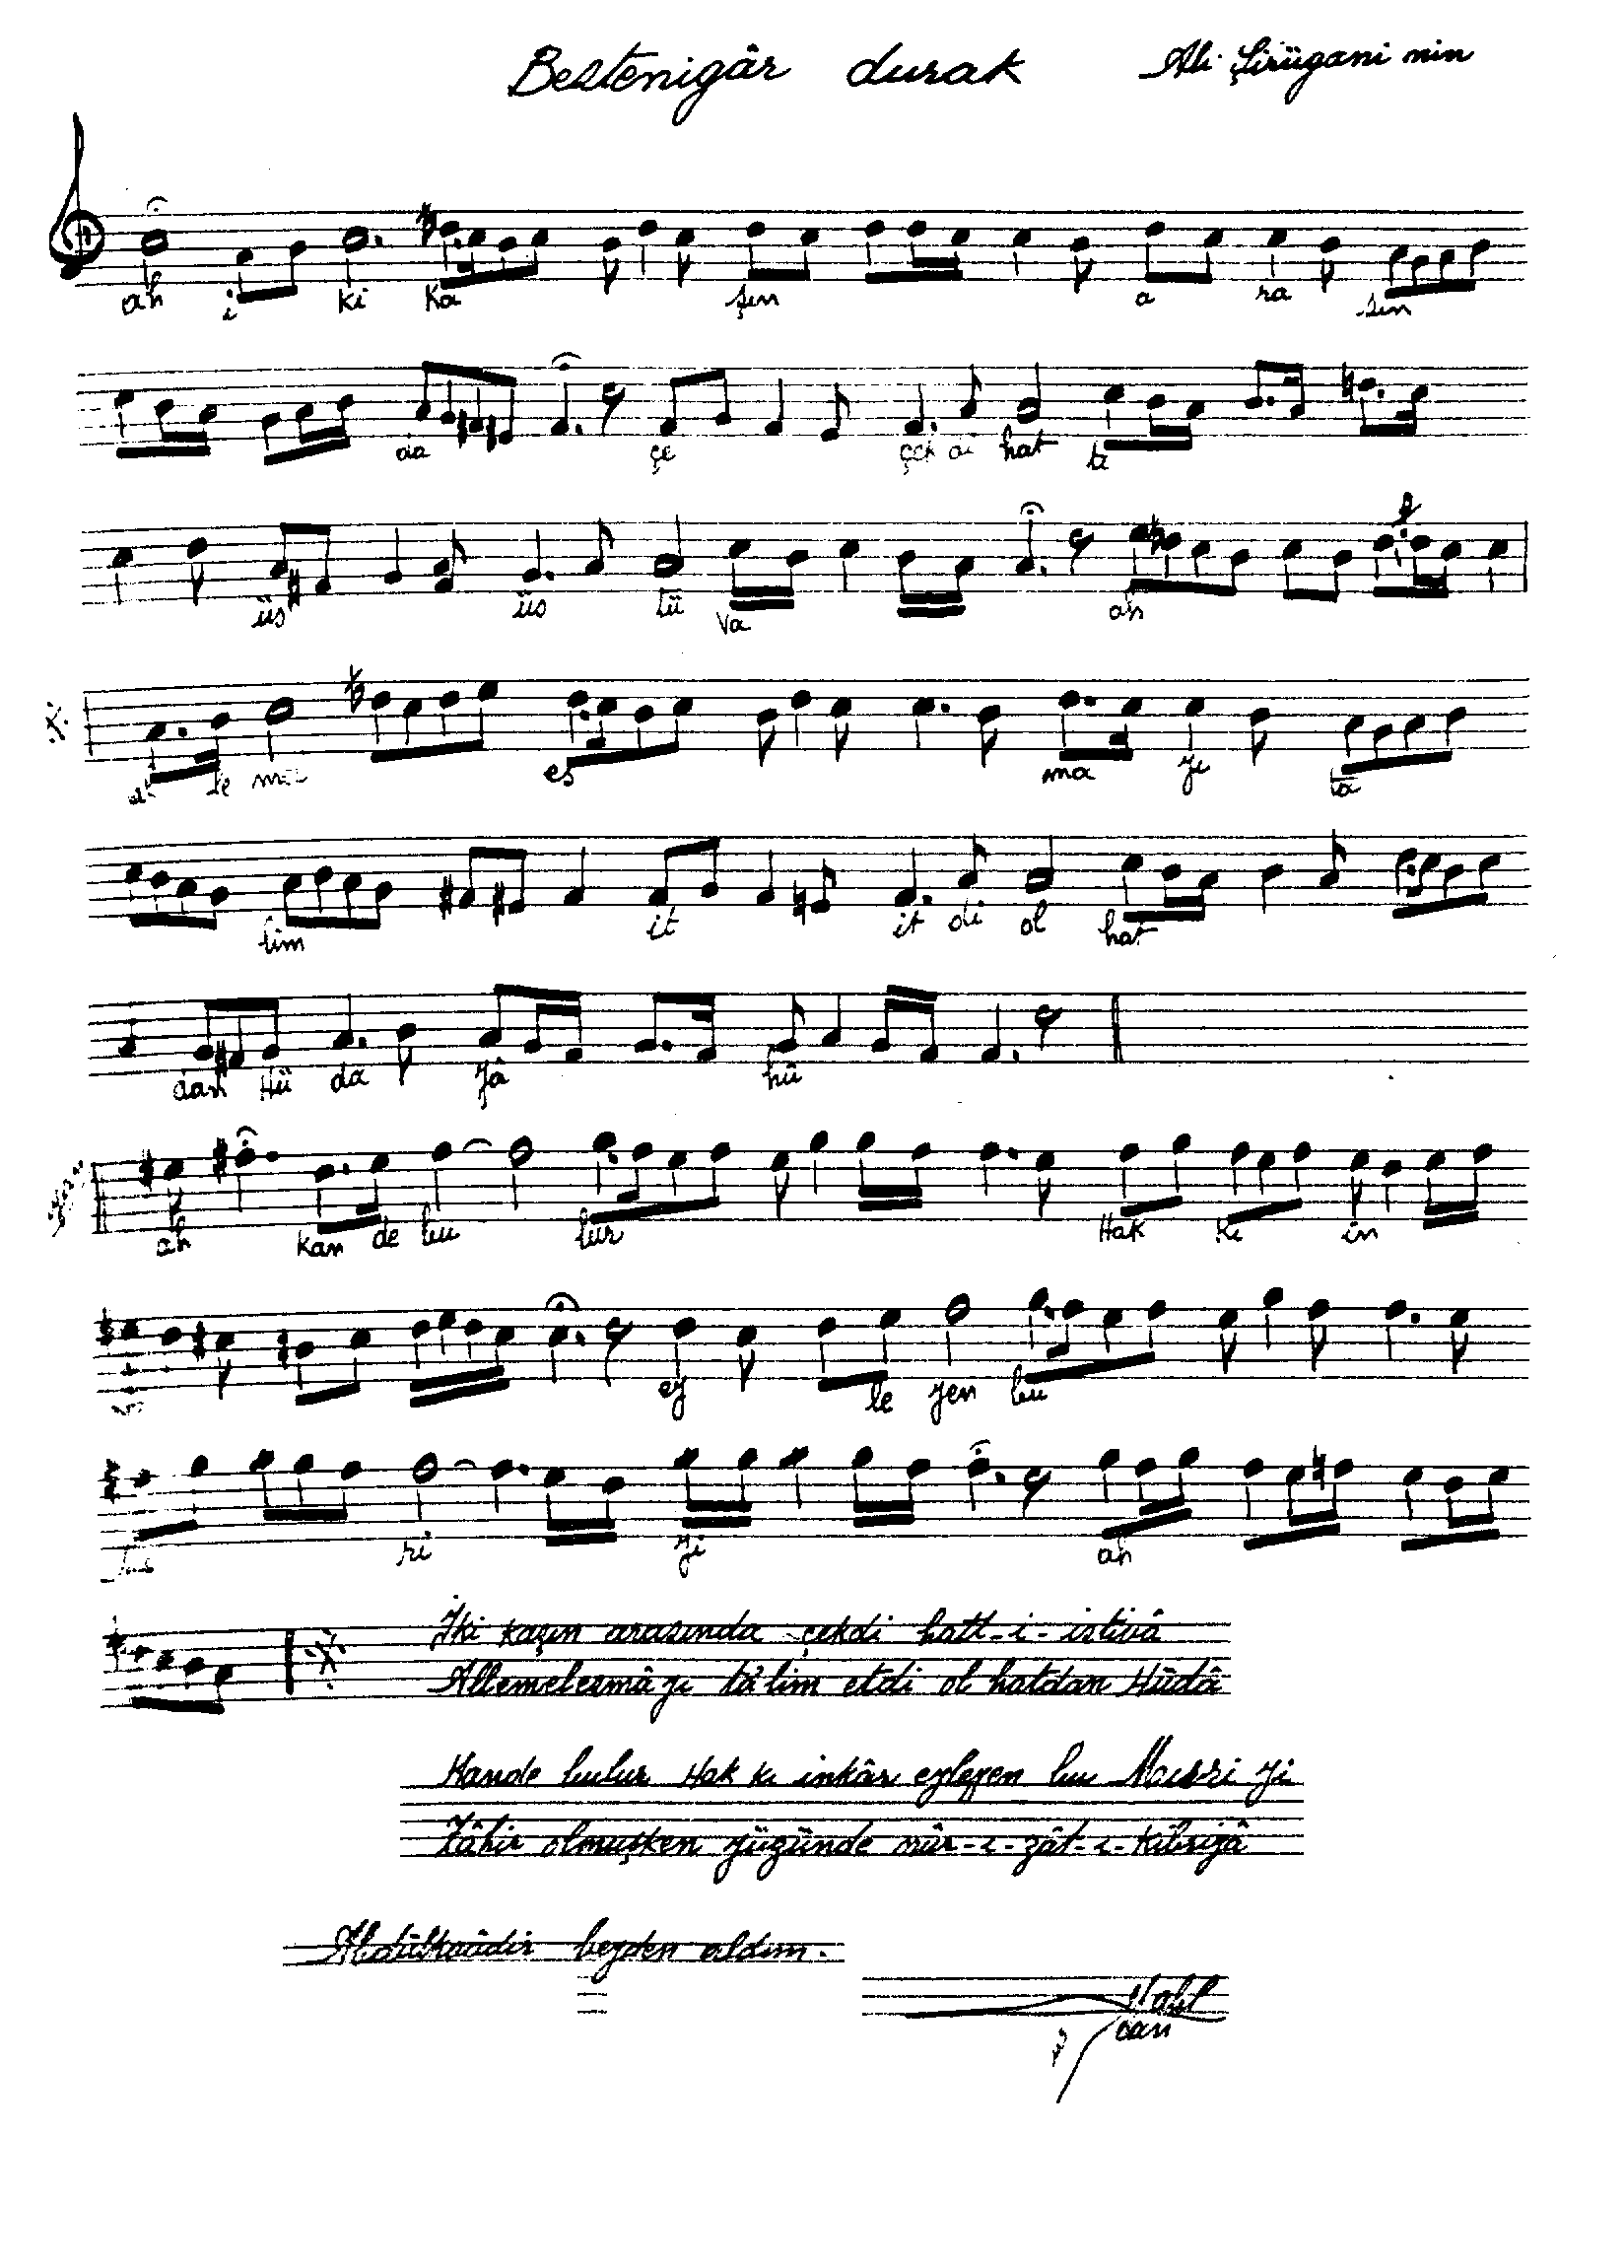 Bestenigâr durak Ali Şirügani nin
ah i ki ka şın a ra sın
da çe çek di hat tı
üs üs tü va ah
le me es ma yı tâ
lim it it di ol hat
dan Hü da yâ hû
ah kan de bu lur Hak kı in
ey le yen bu
ri yi ah
İki kaşın arasında çekdi hatt-i-istivâ
Allemelesmâyı tâ'lim etdi ol hatdan Hüdâ
Kande bulur Hak kı inkâr eyleyen bu Mısri yi
Zâhir olmuşken yüzünde nûr-ı-zât-ı-Kibriyâ
Abdülkaâdir beyden aldım.